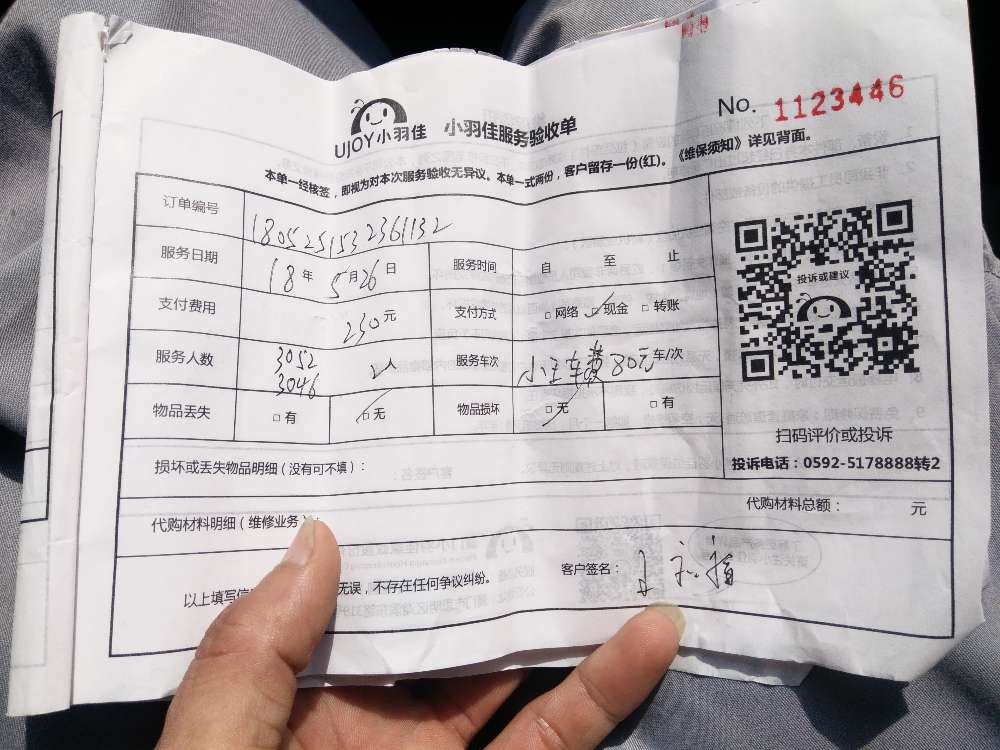 UJOY小羽佳 小羽佳服务验收单
No. 1123446
本单一经核签，即视为对本次服务验收无异议。本单一式两份，客户留存一份(红)。《维保须知》详见背面。
订单编号 1805251532361132
服务日期 18年5月26日 服务时间 自 至 止
支付费用 230元 支付方式 □网络 □现金 □转账
服务人数 3052 3046 2人 服务车次 车费80元车/次
物品丢失 □有 □无 物品损坏 □无 □有
投诉或建议
扫码评价或投诉
投诉电话：0592-5178888转2
损坏或丢失物品明细（没有可不填）：
代购材料明细（维修业务）
代购材料总额： 元
以上填写信 无误，不存在任何争议纠纷。
客户签名：